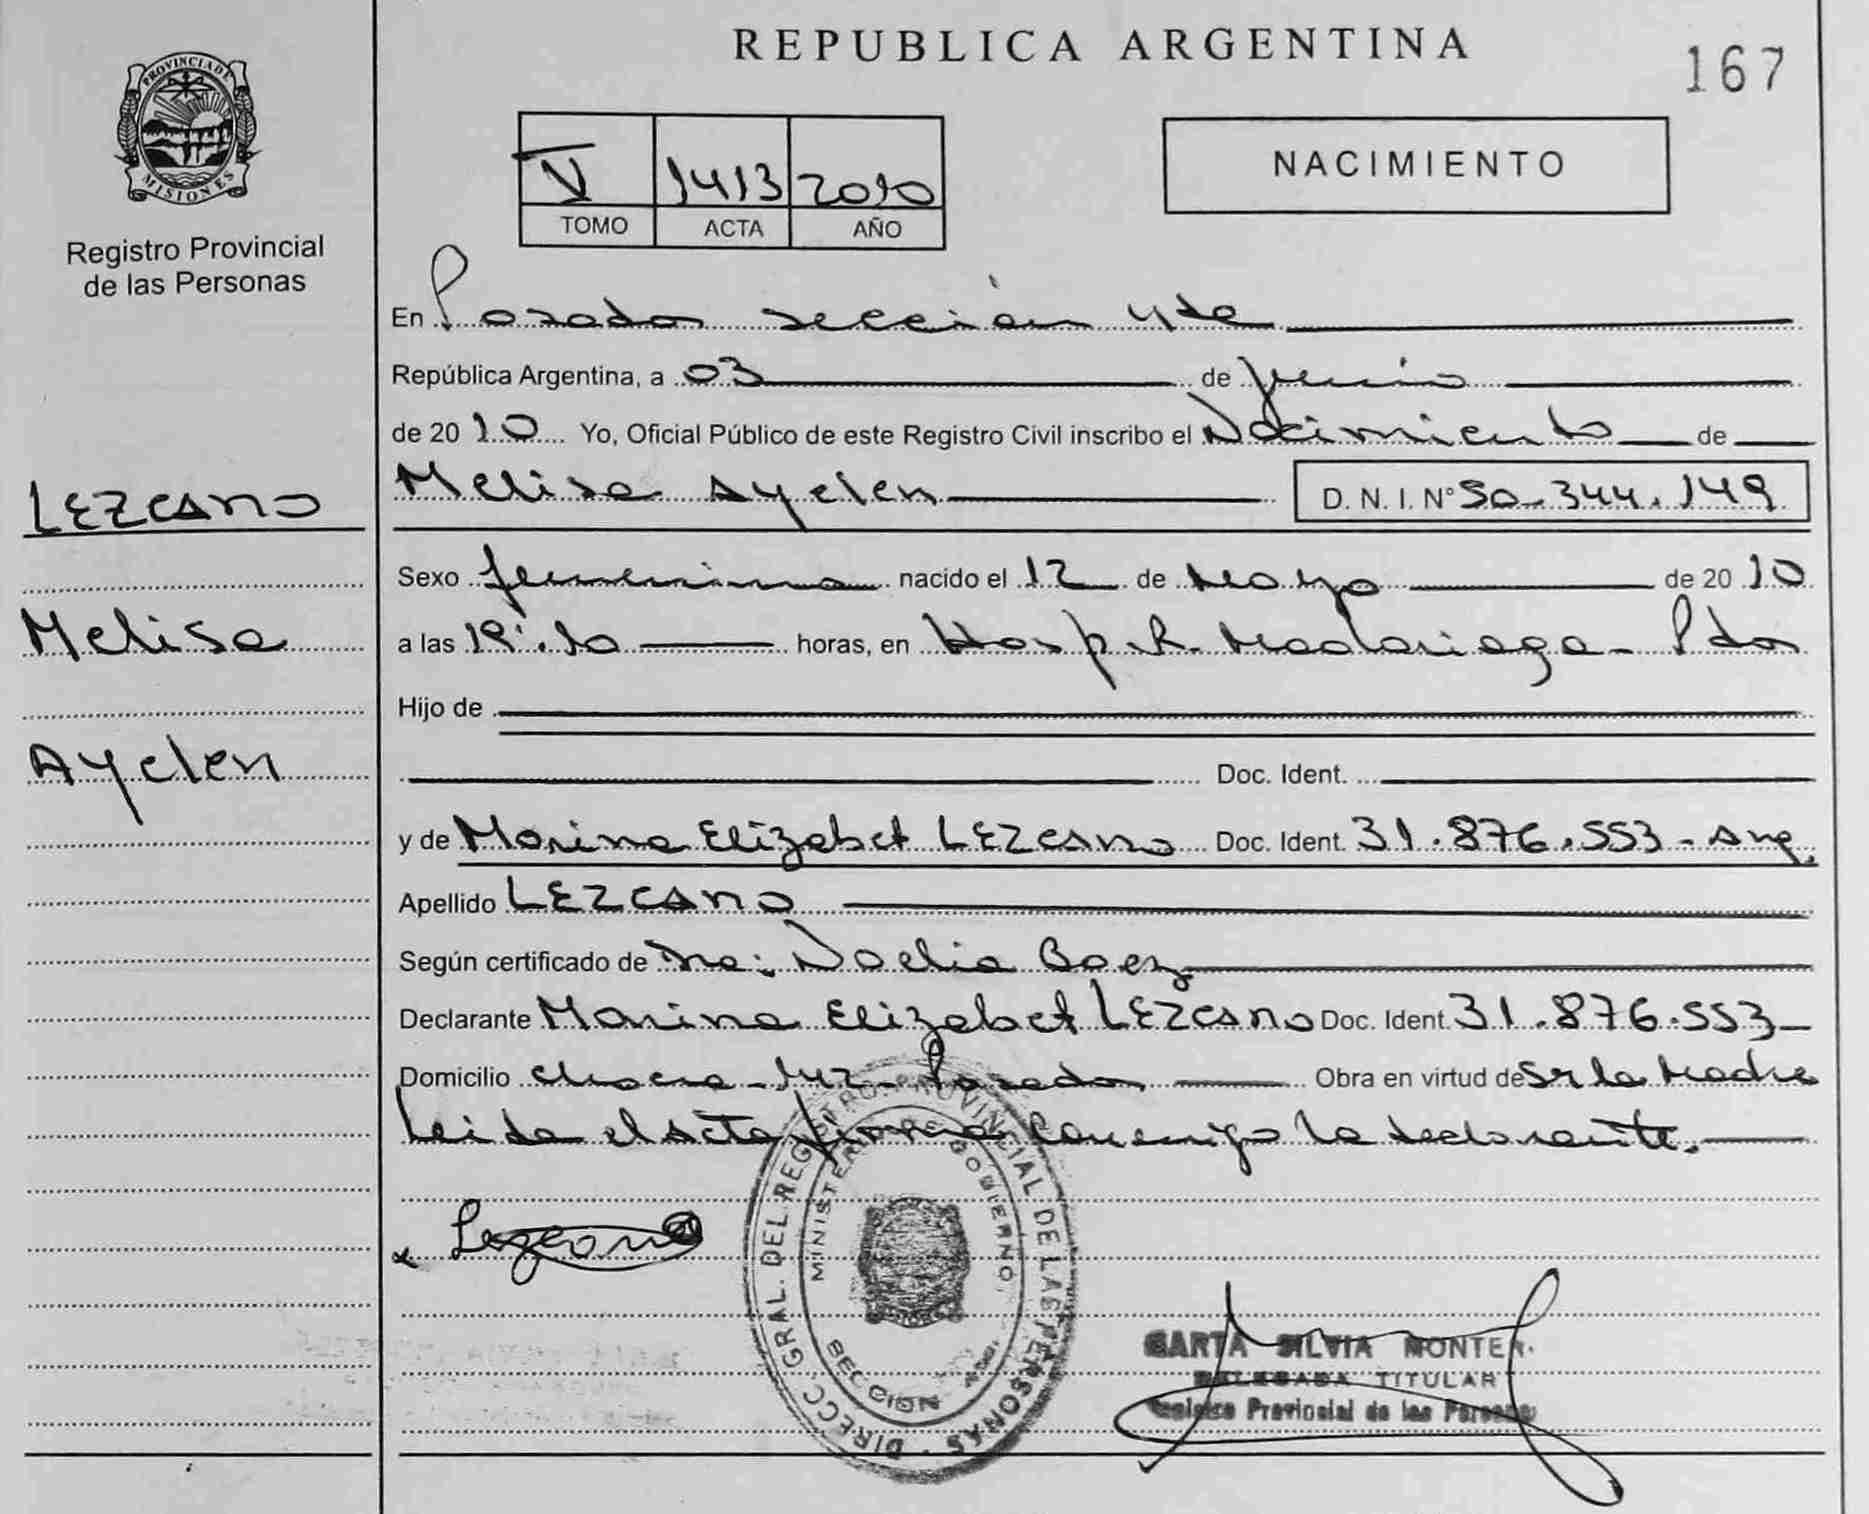 REPUBLICA ARGENTINA
167
PROVINCIA DE MISIONES
Registro Provincial
de las Personas
V 1413 2010
TOMO ACTA AÑO
NACIMIENTO
En Posadas sección 4ta
República Argentina, a 03 de junio
de 20 10 Yo, Oficial Público de este Registro Civil inscribo el Nacimiento de
Melisa Ayelen D. N. I. N° 50.344.149
LEZCANO
Melisa
Ayelen
Sexo femenino nacido el 12 de Mayo de 20 10
a las 19:10 horas, en Hosp. R. Madariaga - Pdas
Hijo de
Doc. Ident.
y de Marina Elizabet LEZCANO Doc. Ident. 31.876.553 - Arg.
Apellido LEZCANO
Según certificado de Dra: Noelia Baez
Declarante Marina Elizabet LEZCANO Doc. Ident. 31.876.553
Domicilio chacra - 142 - Posadas Obra en virtud de Ser la Madre
Leida el acta firma conmigo la declarante.
Lezcano
DIRECC. GRAL. DEL REGISTRO PROVINCIAL DE LAS PERSONAS
MINISTERIO DE GOBIERNO
SECCION
SILVIA MONTE
DELEGADA TITULAR
Provincial de las Personas